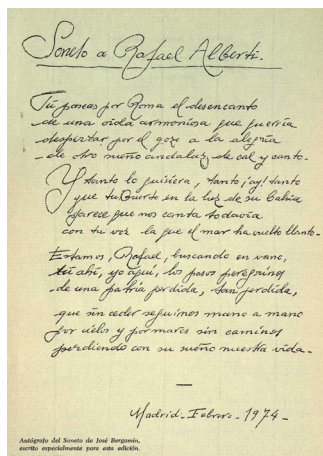 Soneto a Rafael Alberti.
Tú paseas por Roma el desencanto
de una vida armoniosa que querría
despertar por el gozo a la alegría
de otro sueño andaluz, de cal y canto.
Y tanto lo quisiera, tanto ¡ay! tanto
que tu Puerto en la luz de su bahía
parece que nos canta todavía
con tu voz la que el mar ha vuelto llanto.
Estamos, Rafael, buscando en vano,
tú ahí, yo aquí, los pasos peregrinos
de una patria perdida, tan perdida,
que sin ceder seguimos mano a mano
por cielos y por mares sin caminos
perdiendo con su sueño nuestra vida.
Madrid - Febrero - 1974 -
Autógrafo del Soneto de José Bergamín,
escrito especialmente para esta edición.